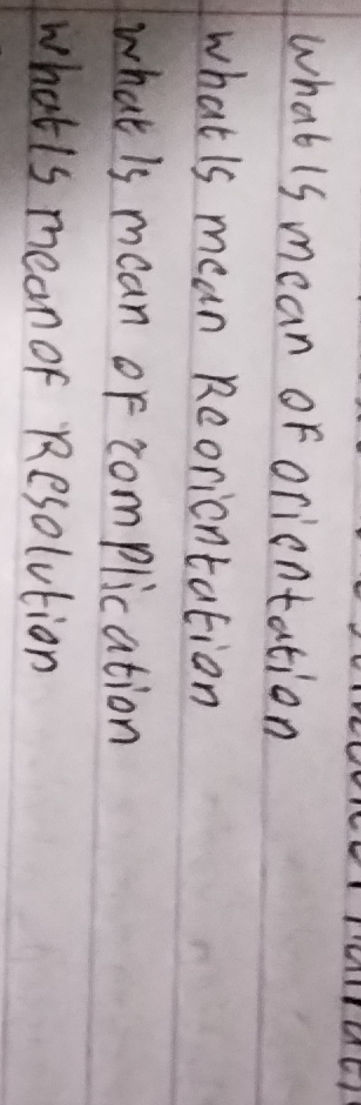 what is mean of orientation
what is mean Reorientation
what is mean of complication
what is mean of Resolution